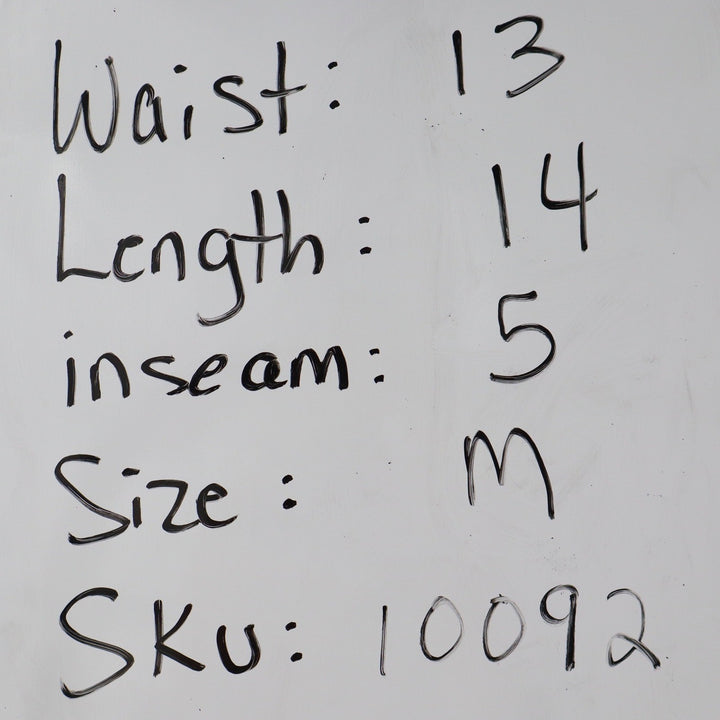 Waist: 13
Length: 14
inseam: 5
Size: M
SKU: 10092